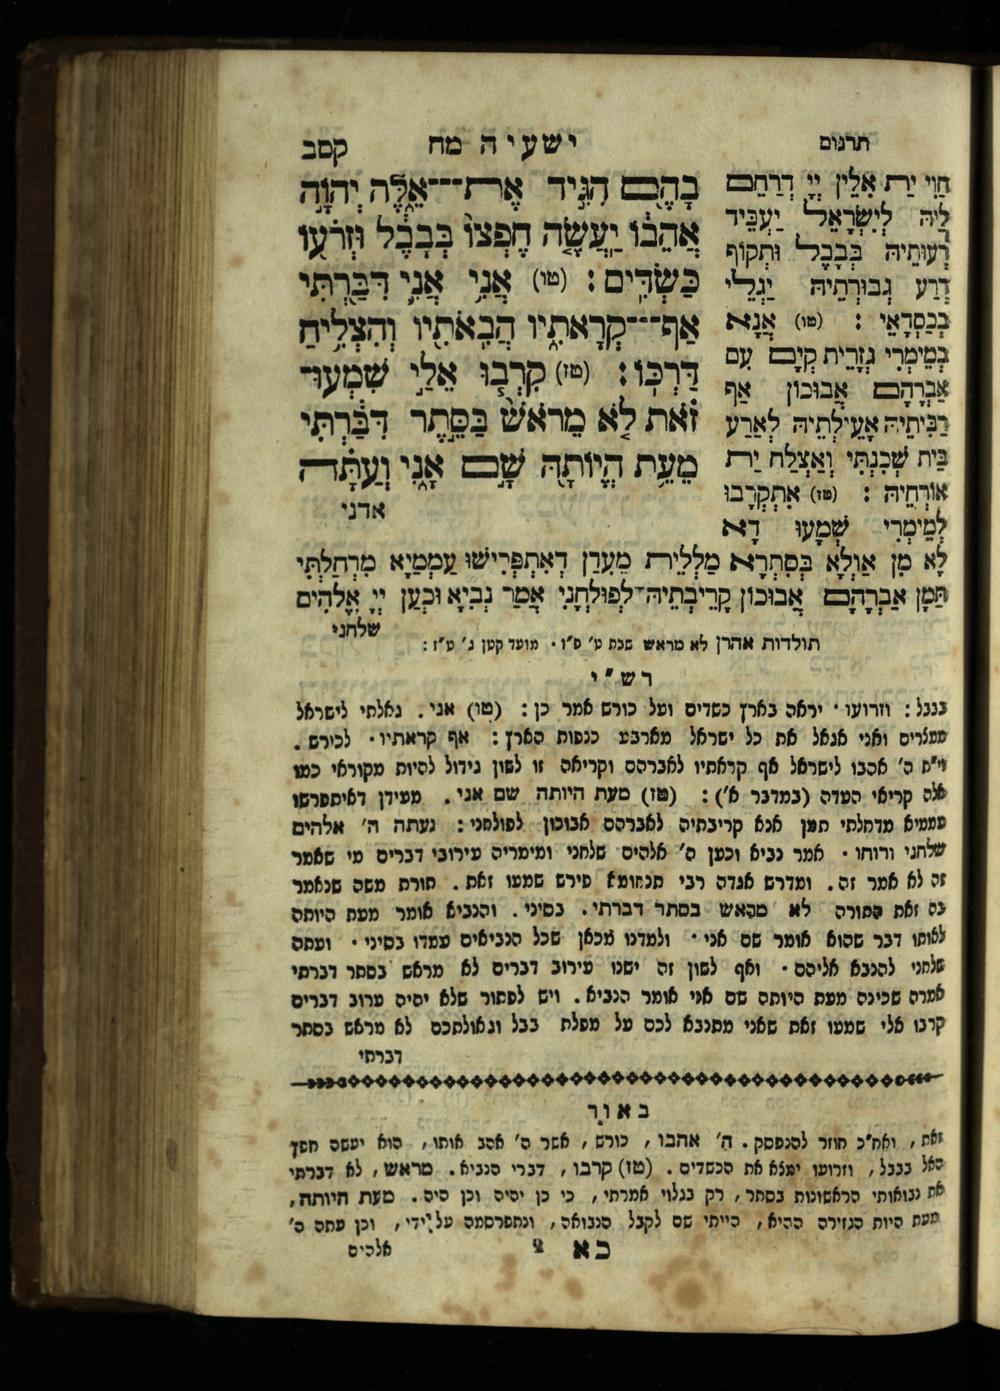 תרגום
ישעיה מח
קסב
בָּהֶם הִגִּיד אֶת־־־אֵלֶּה יְהוָֹה
אֲהֵבוֹ יַעֲשֶׂה חֶפְצוֹ בְּבָבֶל וּזְרֹעוֹ
כַּשְׂדִּים : (טו) אֲנִי אֲנִי דִּבַּרְתִּי
אַף־־־קְרָאתִיו הֲבִאֹתִיו וְהִצְלִיחַ
דַּרְכּוֹ : (טז) קִרְבוּ אֵלַי שִׁמְעוּ־
זֹאת לֹא מֵרֹאשׁ בַּסֵּתֶר דִּבַּרְתִּי
מֵעֵת הֱיוֹתָהּ שָׁם אָנִי וְעַתָּה
אדני
חַוִי יַת אִלֵין יְיָ דְרַחֵם
לֵיהּ לְיִשְׂרָאֵל יַעְבֵּיד
רְעוּתֵיהּ בְּבָבֶל וּתְקוֹף
דְרַע גְבוּרְתֵיהּ יַגְלֵי
בְכַסְדָאֵי : (טו) אֲנָא
בְמֵימְרִי גְזָרֵית קְיָם עִם
אַבְרָהָם אֲבוּכוֹן אַף
רַבִּיתֵיהּ אָעֵילְתֵּיהּ לְאַרַע
בֵּית שְׁכִנְתִּי וְאַצְלַח יַת
אוֹרְחֵיהּ : (טז) אִתְקְרָבוּ
לְמֵימְרִי שְׁמָעוּ דָא
לָא מִן אַוְלָא בְּסִתְרָא מַלְּלֵית מֵעִדָן דְאִתְפְּרִישׁוּ עַמְמַיָא מִדְּחַלְתִּי
תַּמָן אַבְרָהָם אֲבוּכוֹן קָרֵיבְתֵיהּ־לְפוּלְחָנִי אֲמַר נְבִיָא וּכְעַן יְיָ אֱלֹהִים
שלחני
תולדות אהרן לא מראש שבת ט' פ"ו . מועד קטן ג' ט"ז :
רש"י
בבבל : וזרועו . יראה בארץ כשדים ועל כורש אמר כן : (טו) אני . גאלתי לישראל
ממצרים ואני אגאל את כל ישראל מארבע כנפות הארץ : אף קראתיו . לכורש .
וי"ת ה' אהבו לישראל אף קראתיו לאברהם וקריאה זו לשון גידול להיות מקוראי כמו
אלה קריאי העדה (במדבר א') : (טז) מעת היותה שם אני . מעידן דאיתפרשו
עממיא מדחלתי תמן אנא קריבתיה לאברהם אבוכון לפולחני : ועתה ה' אלהים
שלחני ורוחו . אמר נביא וכען ה' אלהים שלחני ומימריה עירובי דברים מי שאמר
זה לא אמר זה . ומדרש אגדה רבי תנחומא פירש שמעו זאת . תורת משה שנאמר
בה זאת התורה לא מראש בסתר דברתי . בסיני . והנביא אומר מעת היותה
לאותו דבר שהוא אומר שם אני . ולמדנו מכאן שכל הנביאים עמדו בסיני . ועתה
שלחני להנבא אליהם . ואף לשון זה ישנו עירוב דברים לא מראש בסתר דברתי
אמרה שכינה מעת היותה שם אני אומר הנביא . ויש לפתור שלא יהיה ערוב דברים
קרבו אלי שמעו זאת שאני מתנבא לכם על מפלת בבל וגאולתכם לא מראש בסתר
דברתי
באור
זאת , ואח"כ חוזר להנפסק . ה' אהבו , כורש , אשר ה' אהב אותו , הוא יעשה חפץ
האל בבבל , וזרועו ימצא את הכשדים . (טז) קרבו , דברי הנביא . מראש , לא דברתי
את נבואותי הראשונות בסתר , רק בגלוי אמרתי , כי כן יהיה וכן היה . מעת היותה ,
מעת היות הגזירה ההיא , הייתי שם לקבל הנבואה , ונתפרסמה על ידי , וכן עתה ה'
כא
אלהים